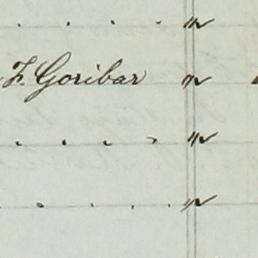 . . . . "
F. Goribar "
. . . . "
. . . . "